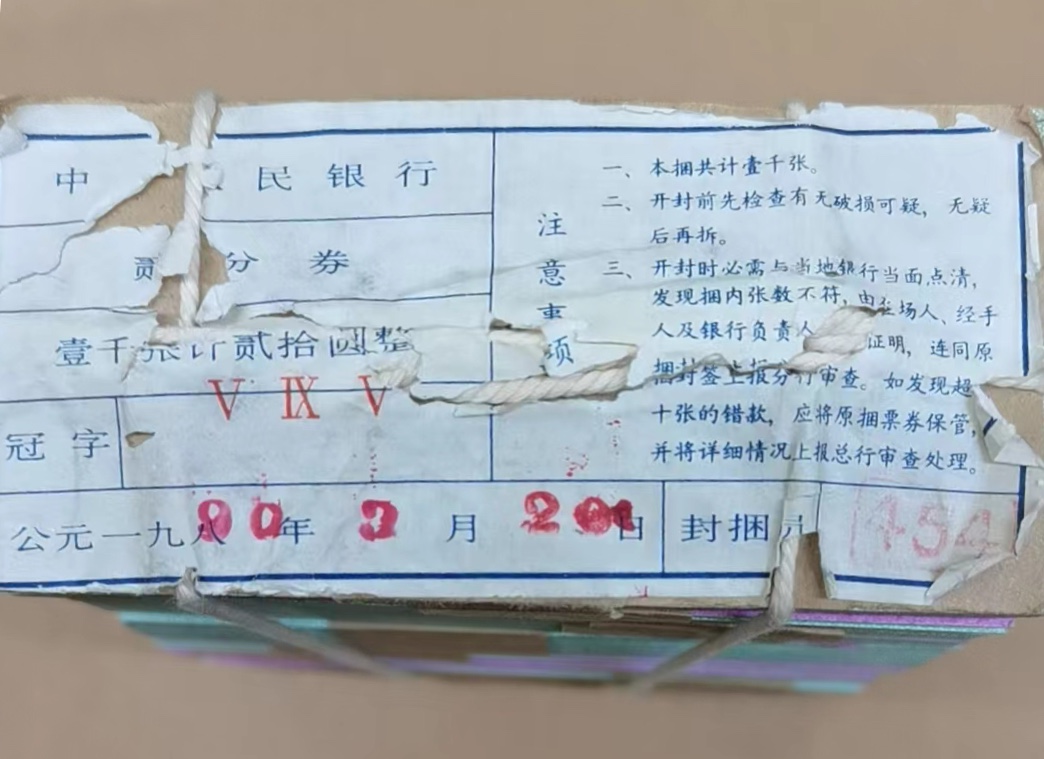 中 民银行
贰分券
壹千张计贰拾圆整
V IX V
冠字
注意事项
一、本捆共计壹千张。
二、开封前先检查有无破损可疑，无疑
后再拆。
三、开封时必需与当地银行当面点清，
发现捆内张数不符，由在场人、经手
人及银行负责人 证明，连同原
捆封签上报分行审查。如发现超
十张的错款，应将原捆票券保管，
并将详细情况上报总行审查处理。
公元一九八 90年 3 月 20日
封捆员